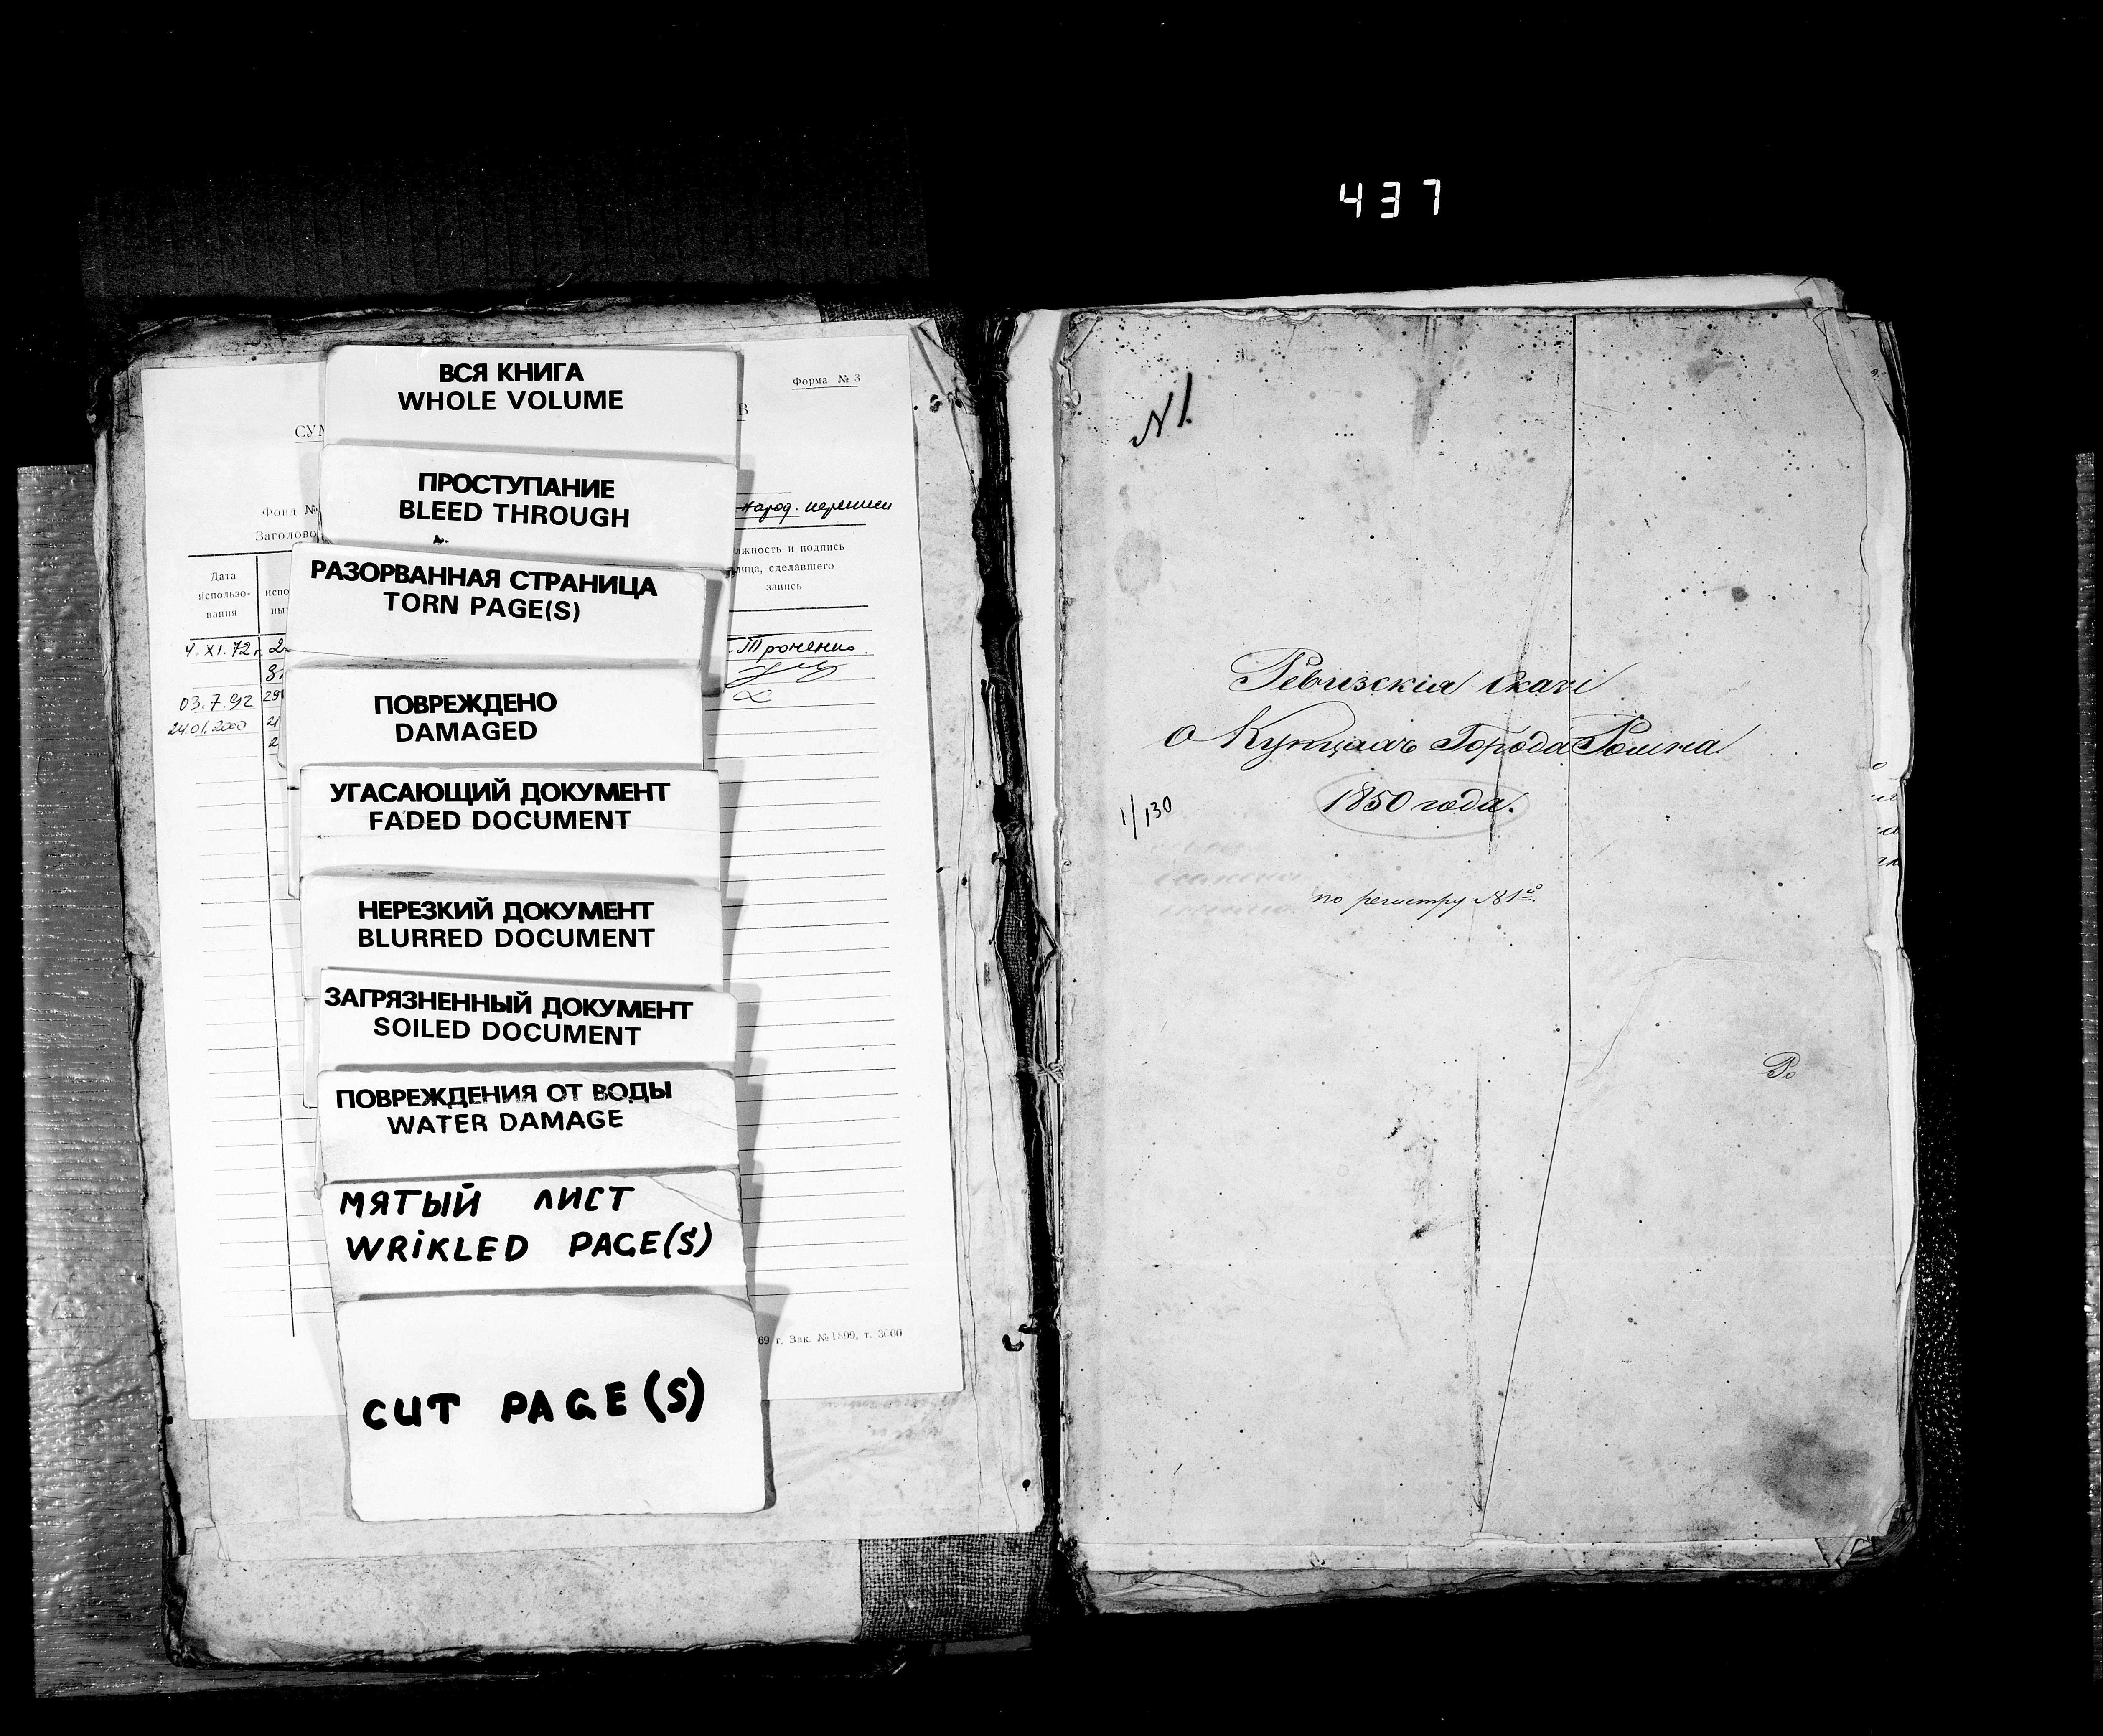 437
Форма № 3
В
СУМ
Фонд №
народ. переписи
Заголово
Дата
использо-
вания
испо
ны
лжность и подпись
лица, сделавшего
запись
4.XI.72г.
Троненко.
03.7.92
24.01.2000
69 г. Зак. № 1899, т. 3000
ВСЯ КНИГА
WHOLE VOLUME
ПРОСТУПАНИЕ
BLEED THROUGH
РАЗОРВАННАЯ СТРАНИЦА
TORN PAGE(S)
ПОВРЕЖДЕНО
DAMAGED
УГАСАЮЩИЙ ДОКУМЕНТ
FADED DOCUMENT
НЕРЕЗКИЙ ДОКУМЕНТ
BLURRED DOCUMENT
ЗАГРЯЗНЕННЫЙ ДОКУМЕНТ
SOILED DOCUMENT
ПОВРЕЖДЕНИЯ ОТ ВОДЫ
WATER DAMAGE
МЯТЫЙ ЛИСТ
WRIKLED PAGE(S)
CUT PAGE(S)
N1.
Ревизскія Скаски
о Купцахъ Города Ромна
1850 года.
1/130
по регистру №1й.
Ро